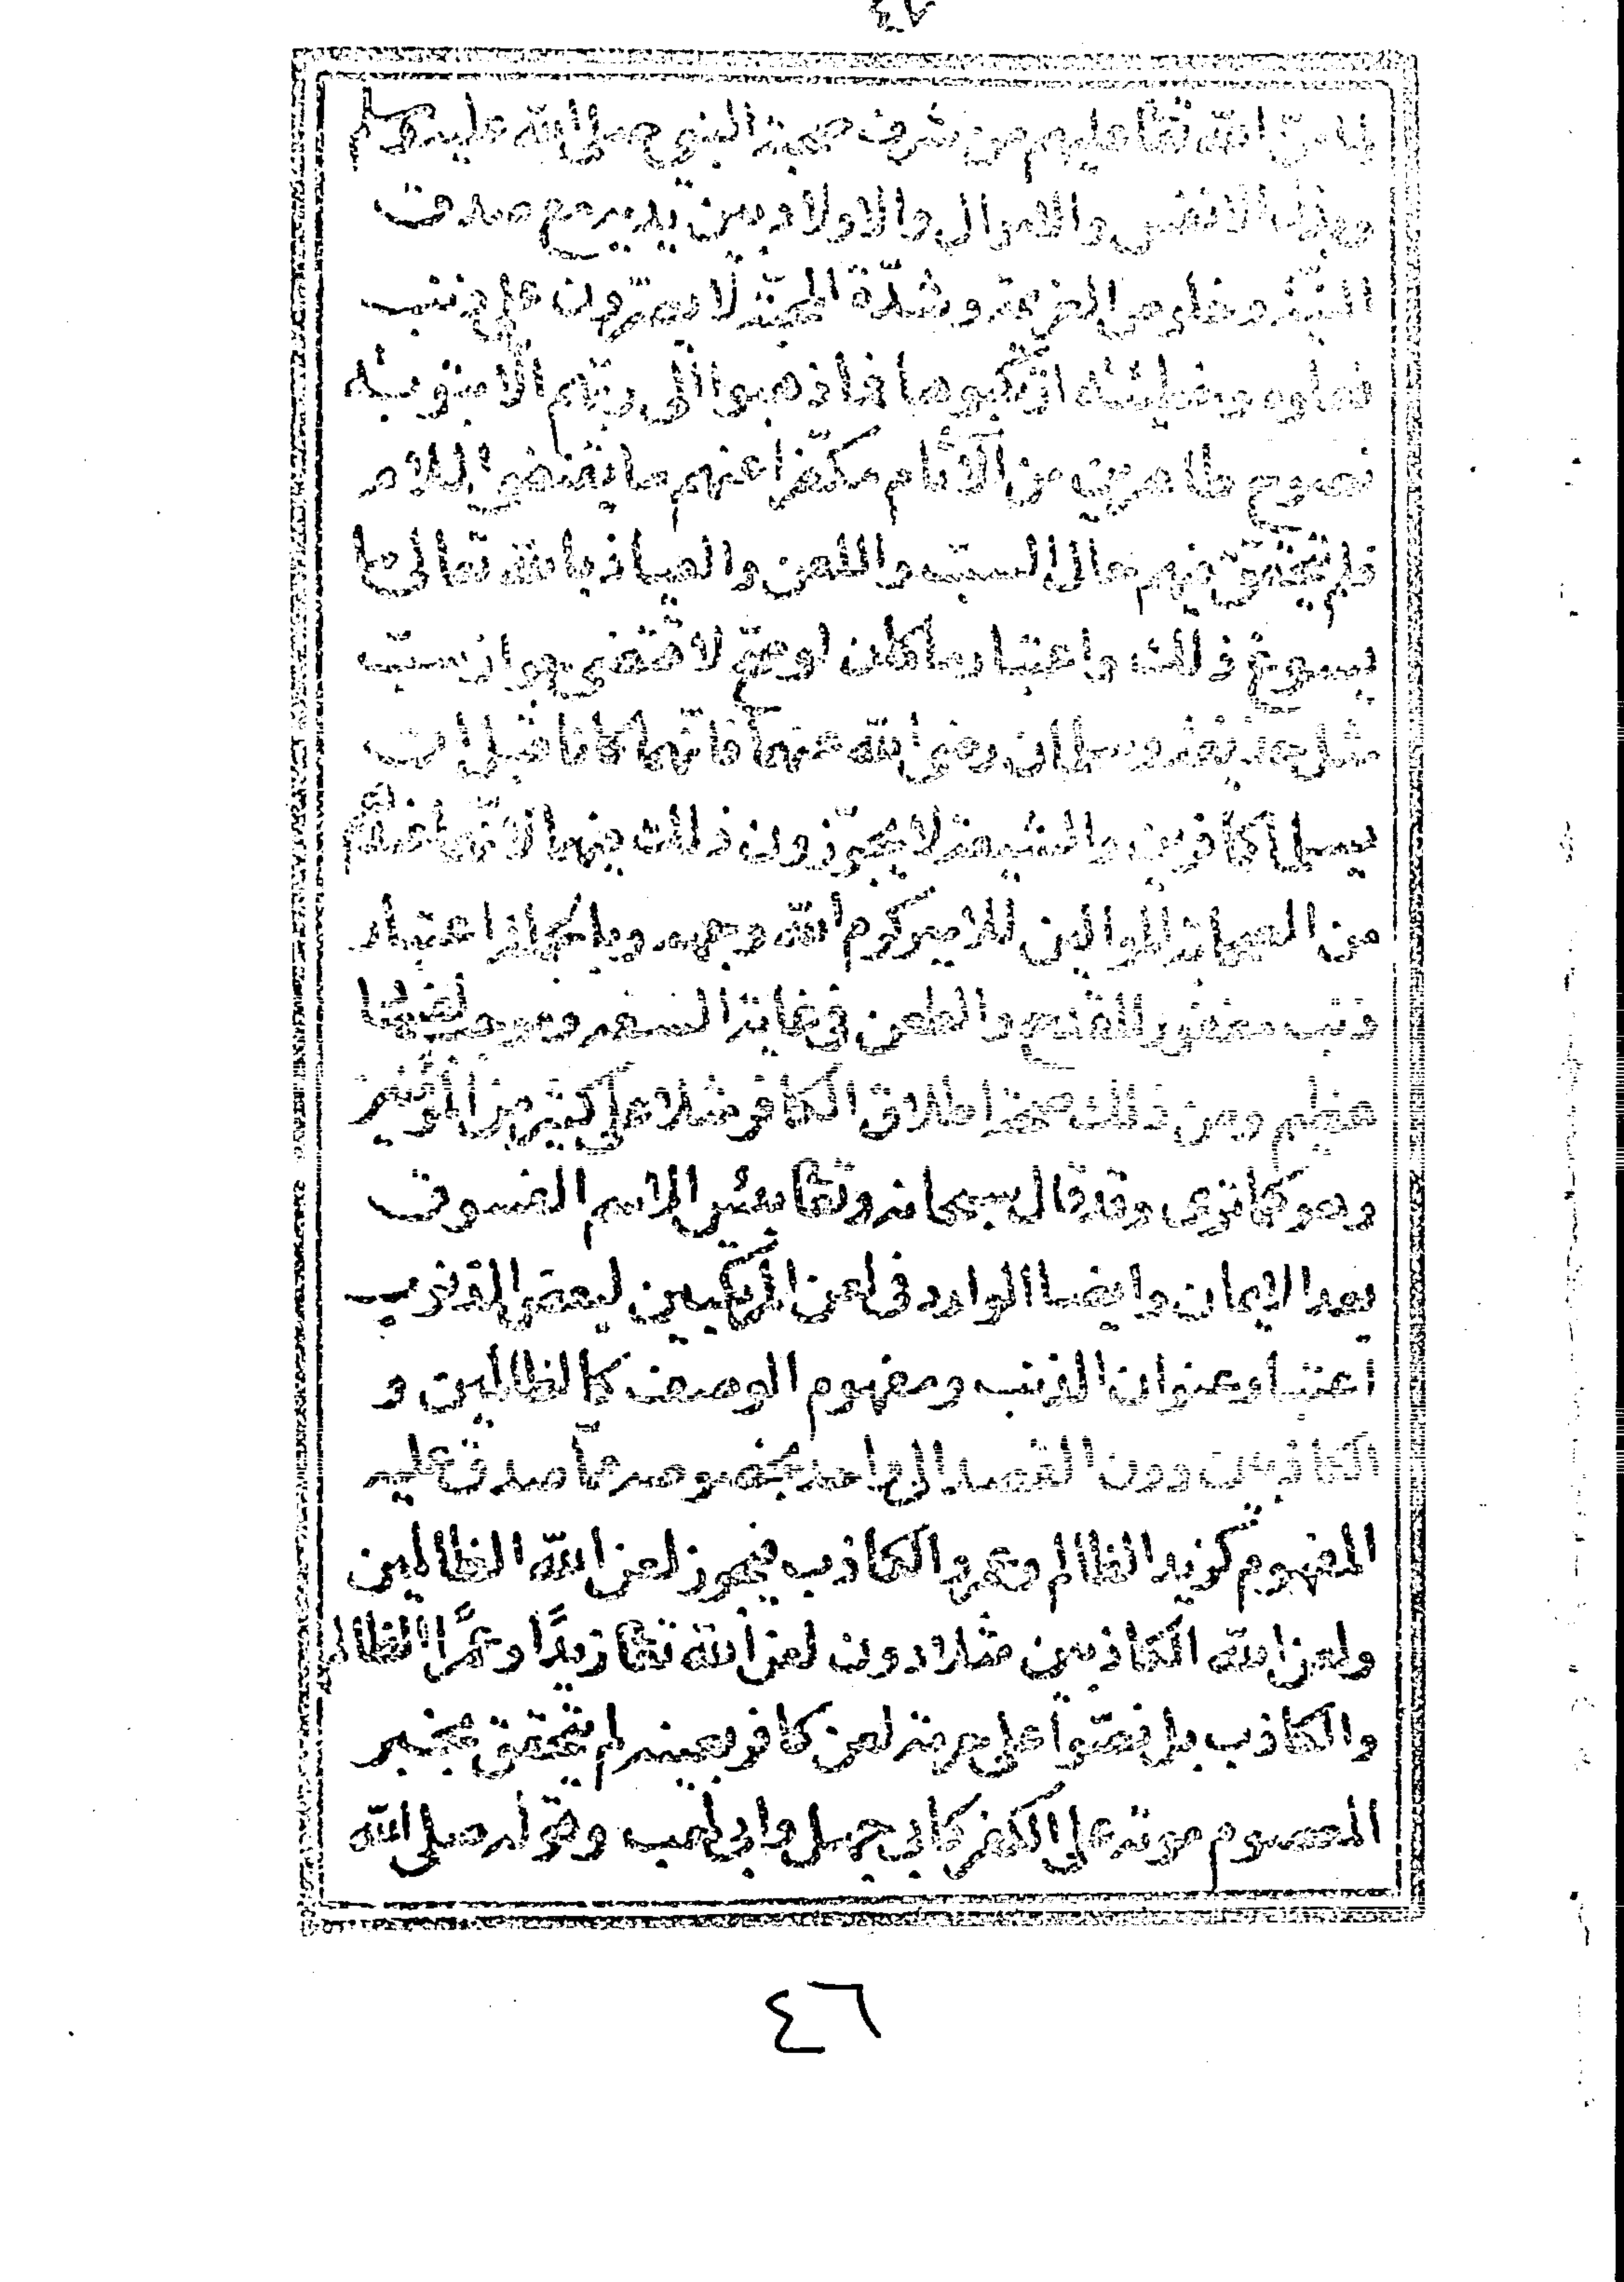 ٤٧
الله تعا عليهم من شرف صحبة النبي صلى الله عليه وسلم
وبذل الانفس والاموال والاولاد بين يديه مع صدق
النية وخلوص العزيمة وشدة المحبة لا يصرون على ذنب
فعلوه وخطيئة ارتكبوها فما ذهبوا الى ربهم الا بتوبة
نصوح طاهرين من الآثام مكفرا عنهم ما يقتضي الملام
فلم يتحقق فيهم حال السب واللعن والعياذ بالله تعالى
يسوغ ذلك واعتبار ما كان لو صح لاقتضى جواز سب
مثل حذيفة وسلمان رضي الله عنهما فانهما كانا قبل ان
يسلما كافرين والشيعة لا يجوزون ذلك فيهما لانهما عندهم
من الصحابة الموالين للامير كرم الله وجهه وبالجملة اعتبار
ذنب مغفور للقدح والطعن في غاية السفه وهو
عظيم ومن ذلك صحة اطلاق الكافر مثلا على كثير من المؤمنين
وهو كما ترى وقد قال سبحانه وتعا بئس الاسم الفسوق
بعد الايمان وايضا الوارد في لعن المرتكبين لبعض الذنوب
اعتبار عنوان الذنب ومفهوم الوصف كالظالمين و
الكاذبين دون القصد الى واحد بخصوصه مما صدق عليه
المفهوم كزيد الظالم وعمرو الكاذب فيجوز لعن الله الظالمين
ولعن الله الكاذبين مثلا دون لعن الله تعا زيدًا وعمرًا الظالم
والكاذب بل نصوا على حرمة لعن كافر بعينه لم يتحقق بخبر
المعصوم موته على الكفر كابي جهل وابي لهب وقوله صلى الله
٤٦